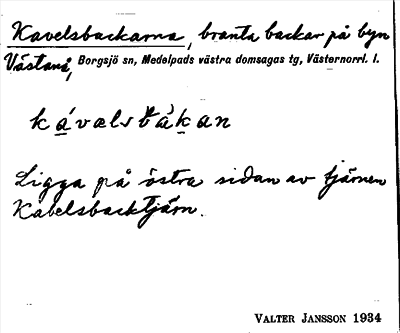 Kavelsbackarna, branta backar på byn
Västanå, Borgsjö sn, Medelpads västra domsagas tg, Västernorrl. l.
kávælsbàkan
Ligga på östra sidan av tjärnen
Kabelsbacktjärn.
VALTER JANSSON 1934